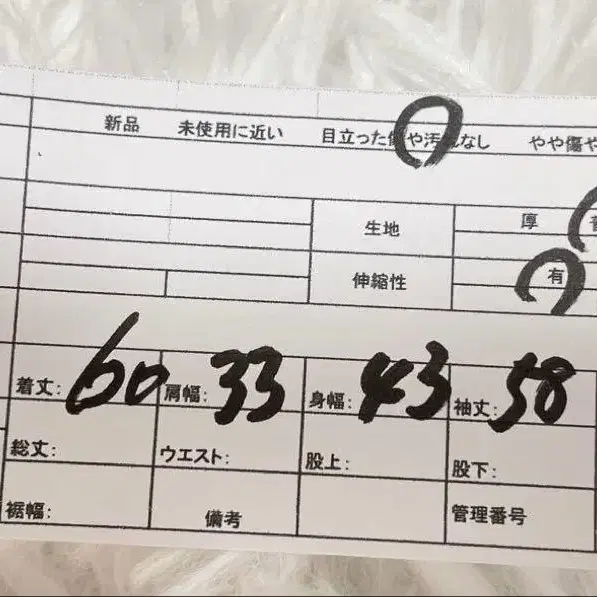 新品 未使用に近い 目立った傷や汚れなし やや傷や
生地 厚
伸縮性 有
着丈: 60 肩幅: 33 身幅: 43 袖丈: 58
総丈: ウエスト: 股上: 股下:
裾幅: 備考 管理番号